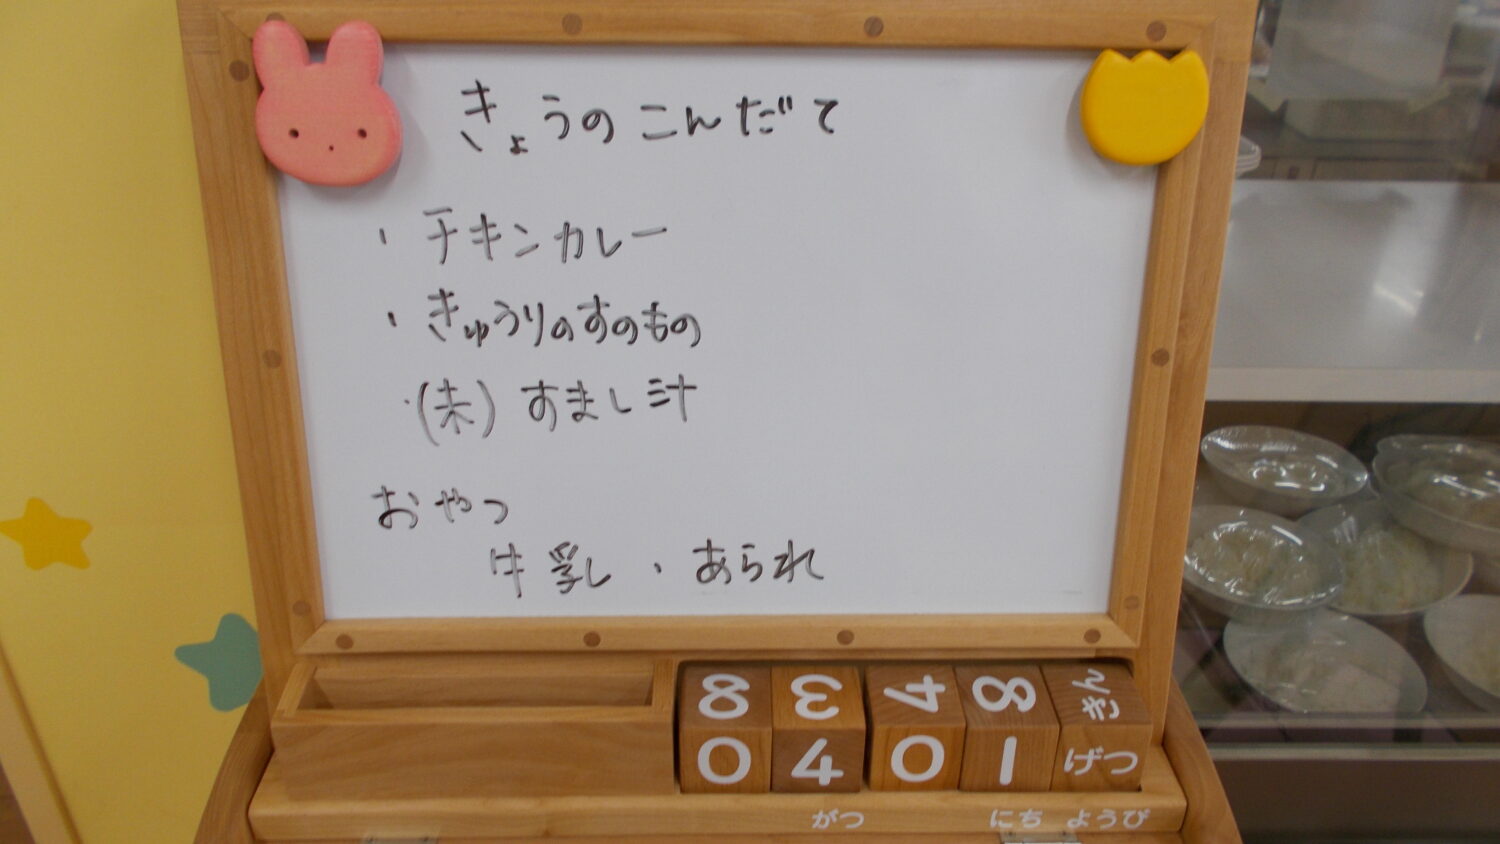 きょうのこんだて
・チキンカレー
・きゅうりのすのもの
・(未) すまし汁
おやつ
牛乳し、あられ
8 3 4 8 きん
0 4 0 1 げつ
がつ にち ようび